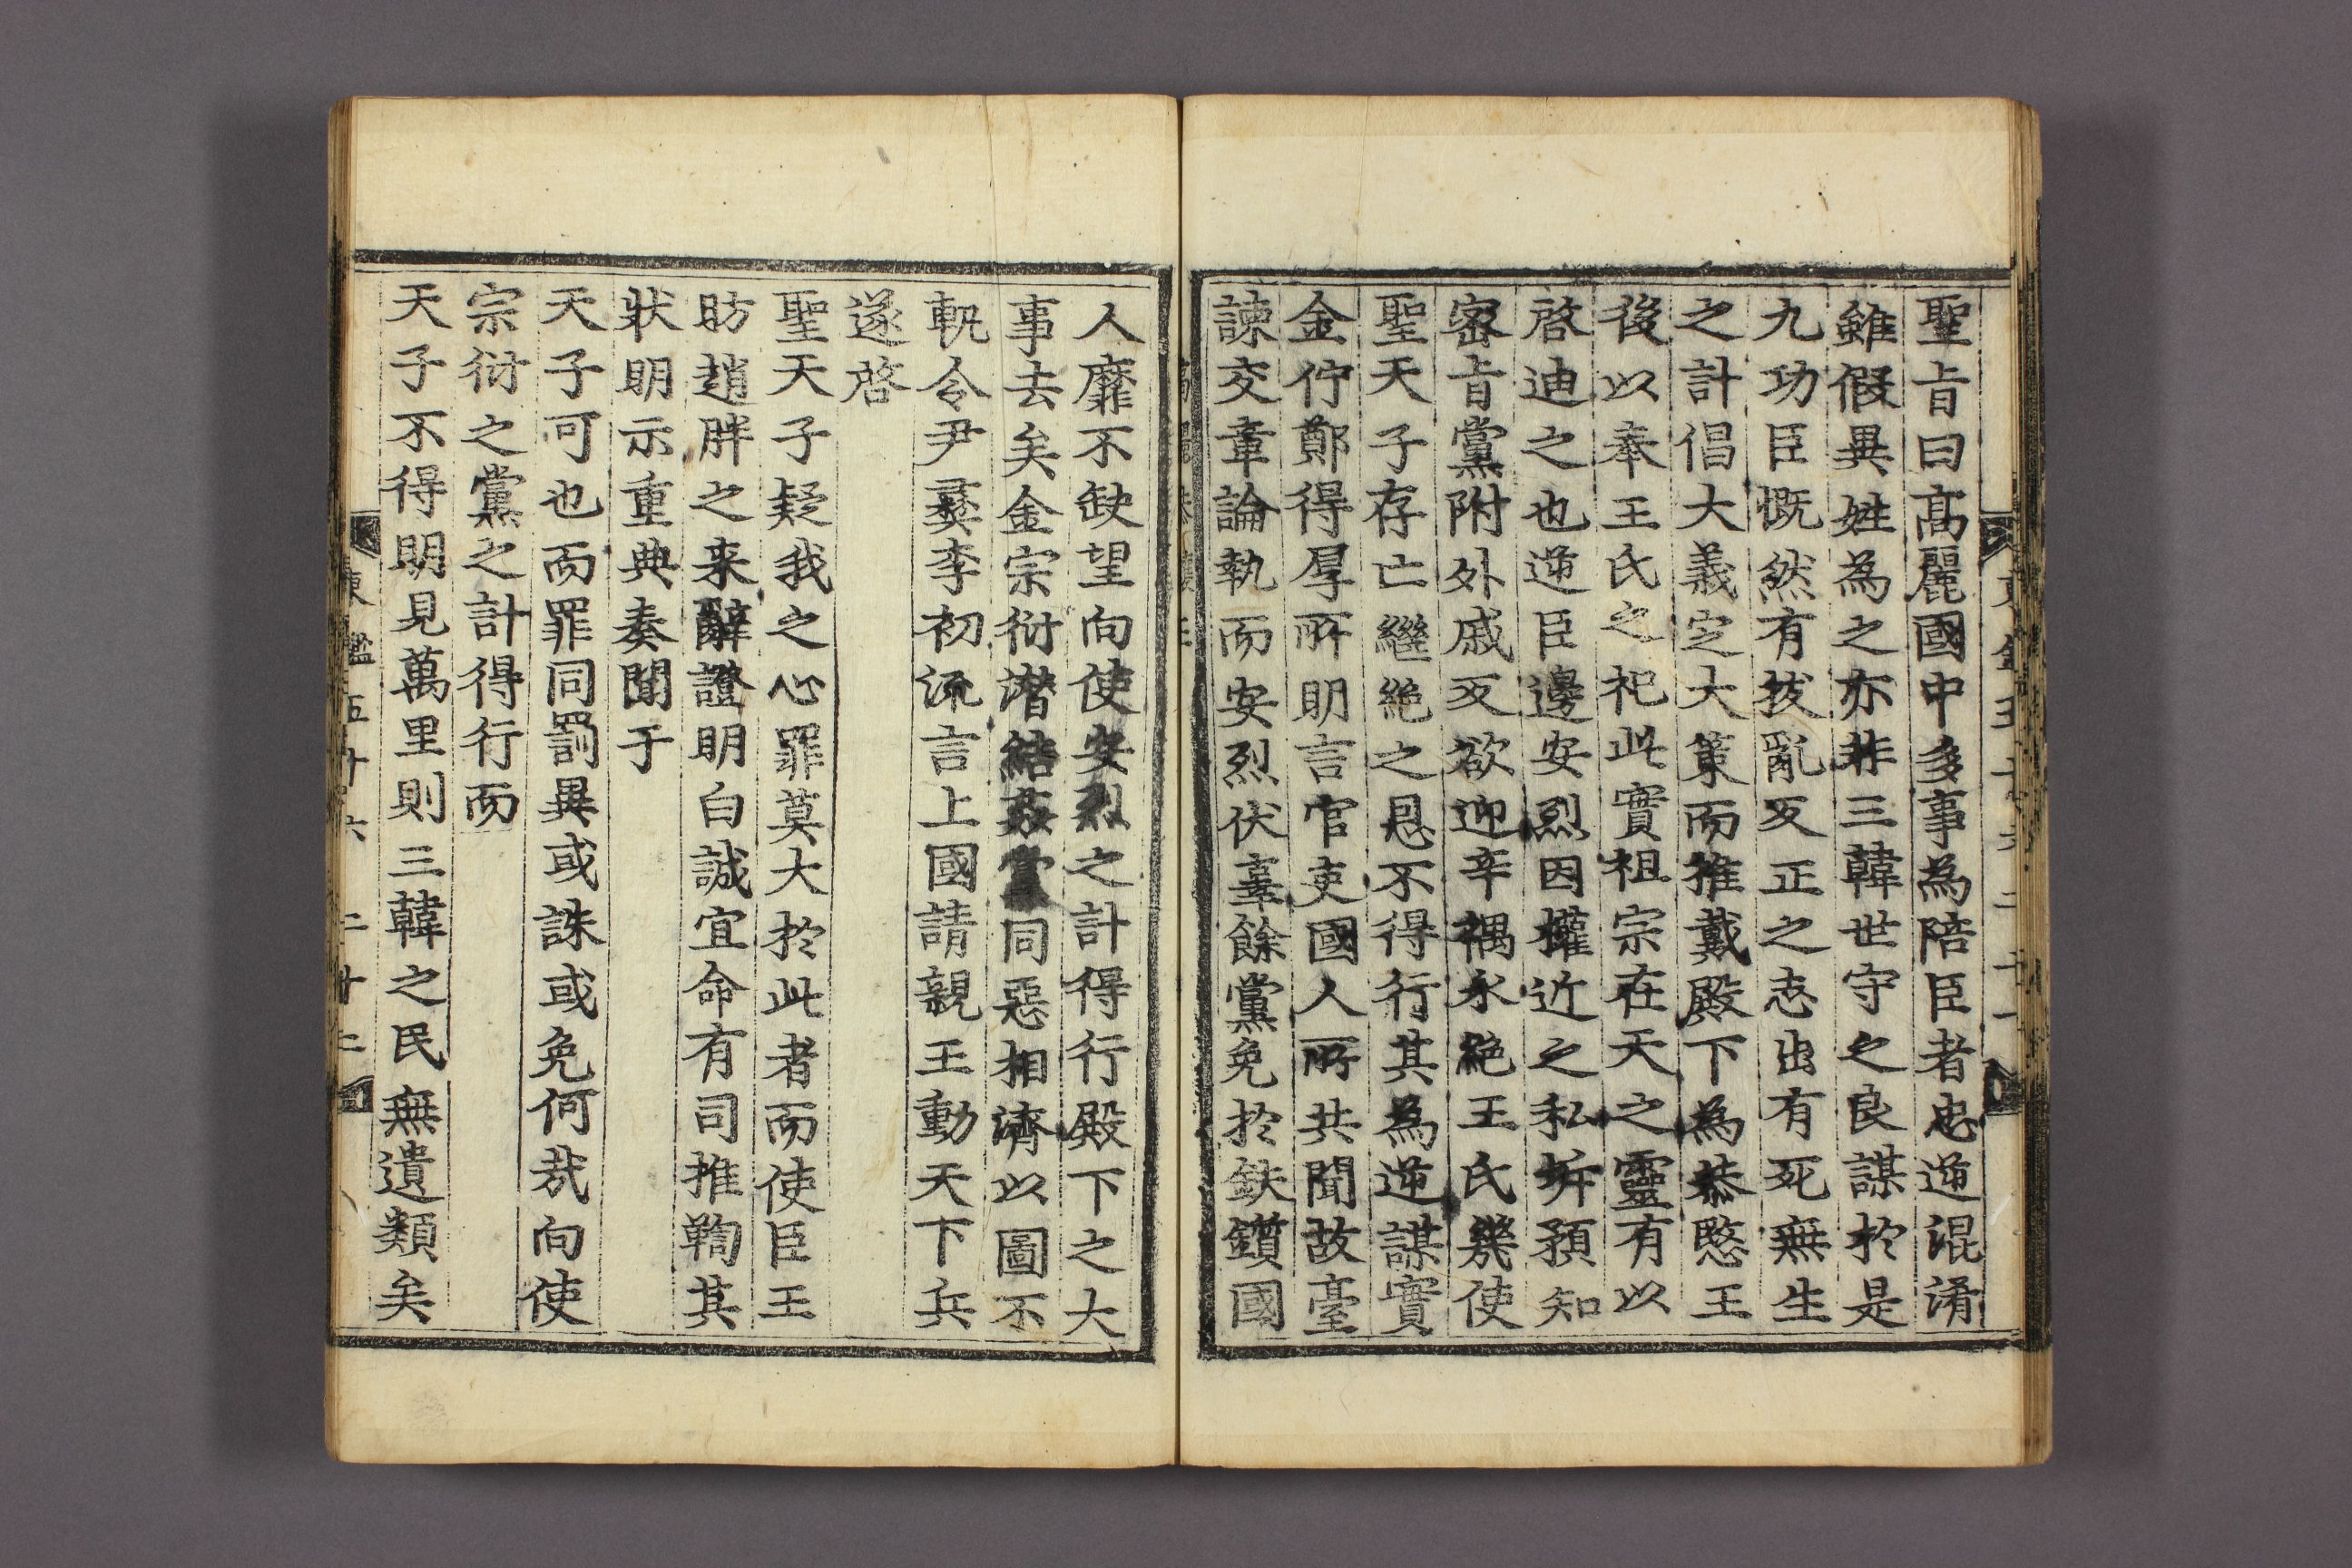 聖旨曰高麗國中多事為陪臣者忠逆混淆
雖假異姓為之亦非三韓世守之良謀於是
九功臣慨然有拔亂反正之志出有死無生
之計倡大義定大策而推戴殿下為恭愍王
後以奉王氏之祀此實祖宗在天之靈有以
啓迪之也逆臣邊安烈因權近之私拆預知
密旨黨附外戚反欲迎辛禑永絶王氏幾使
聖天子存亡繼絶之恩不得行其為逆謀實
金佇鄭得厚所明言官吏國人所共聞故臺
諫交章論執而安烈伏辜餘黨免於鈇鑕國
人靡不缺望向使安烈之計得行殿下之大
事去矣金宗衍潛結姦黨同惡相濟以圖不
軌令尹彝李初流言上國請親王動天下兵
遂啓
聖天子疑我之心罪莫大於此者而使臣王
昉趙胖之来辭證明白誠宜命有司推鞫其
狀明示重典奏聞于
天子可也而罪同罰異或誅或免何哉向使
宗衍之黨之計得行而
天子不得明見萬里則三韓之民無遺類矣
東鑑五十六 二十二